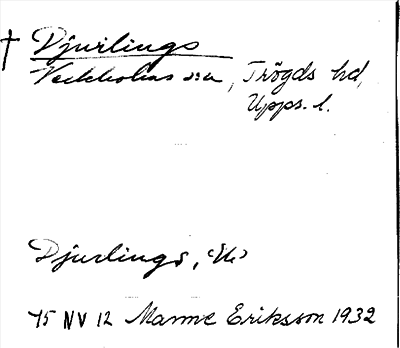 † Djurlings
Veckholms sn, Trögds hd,
Upps. l.
Djurlings,
75 NV 12 Manne Eriksson 1932